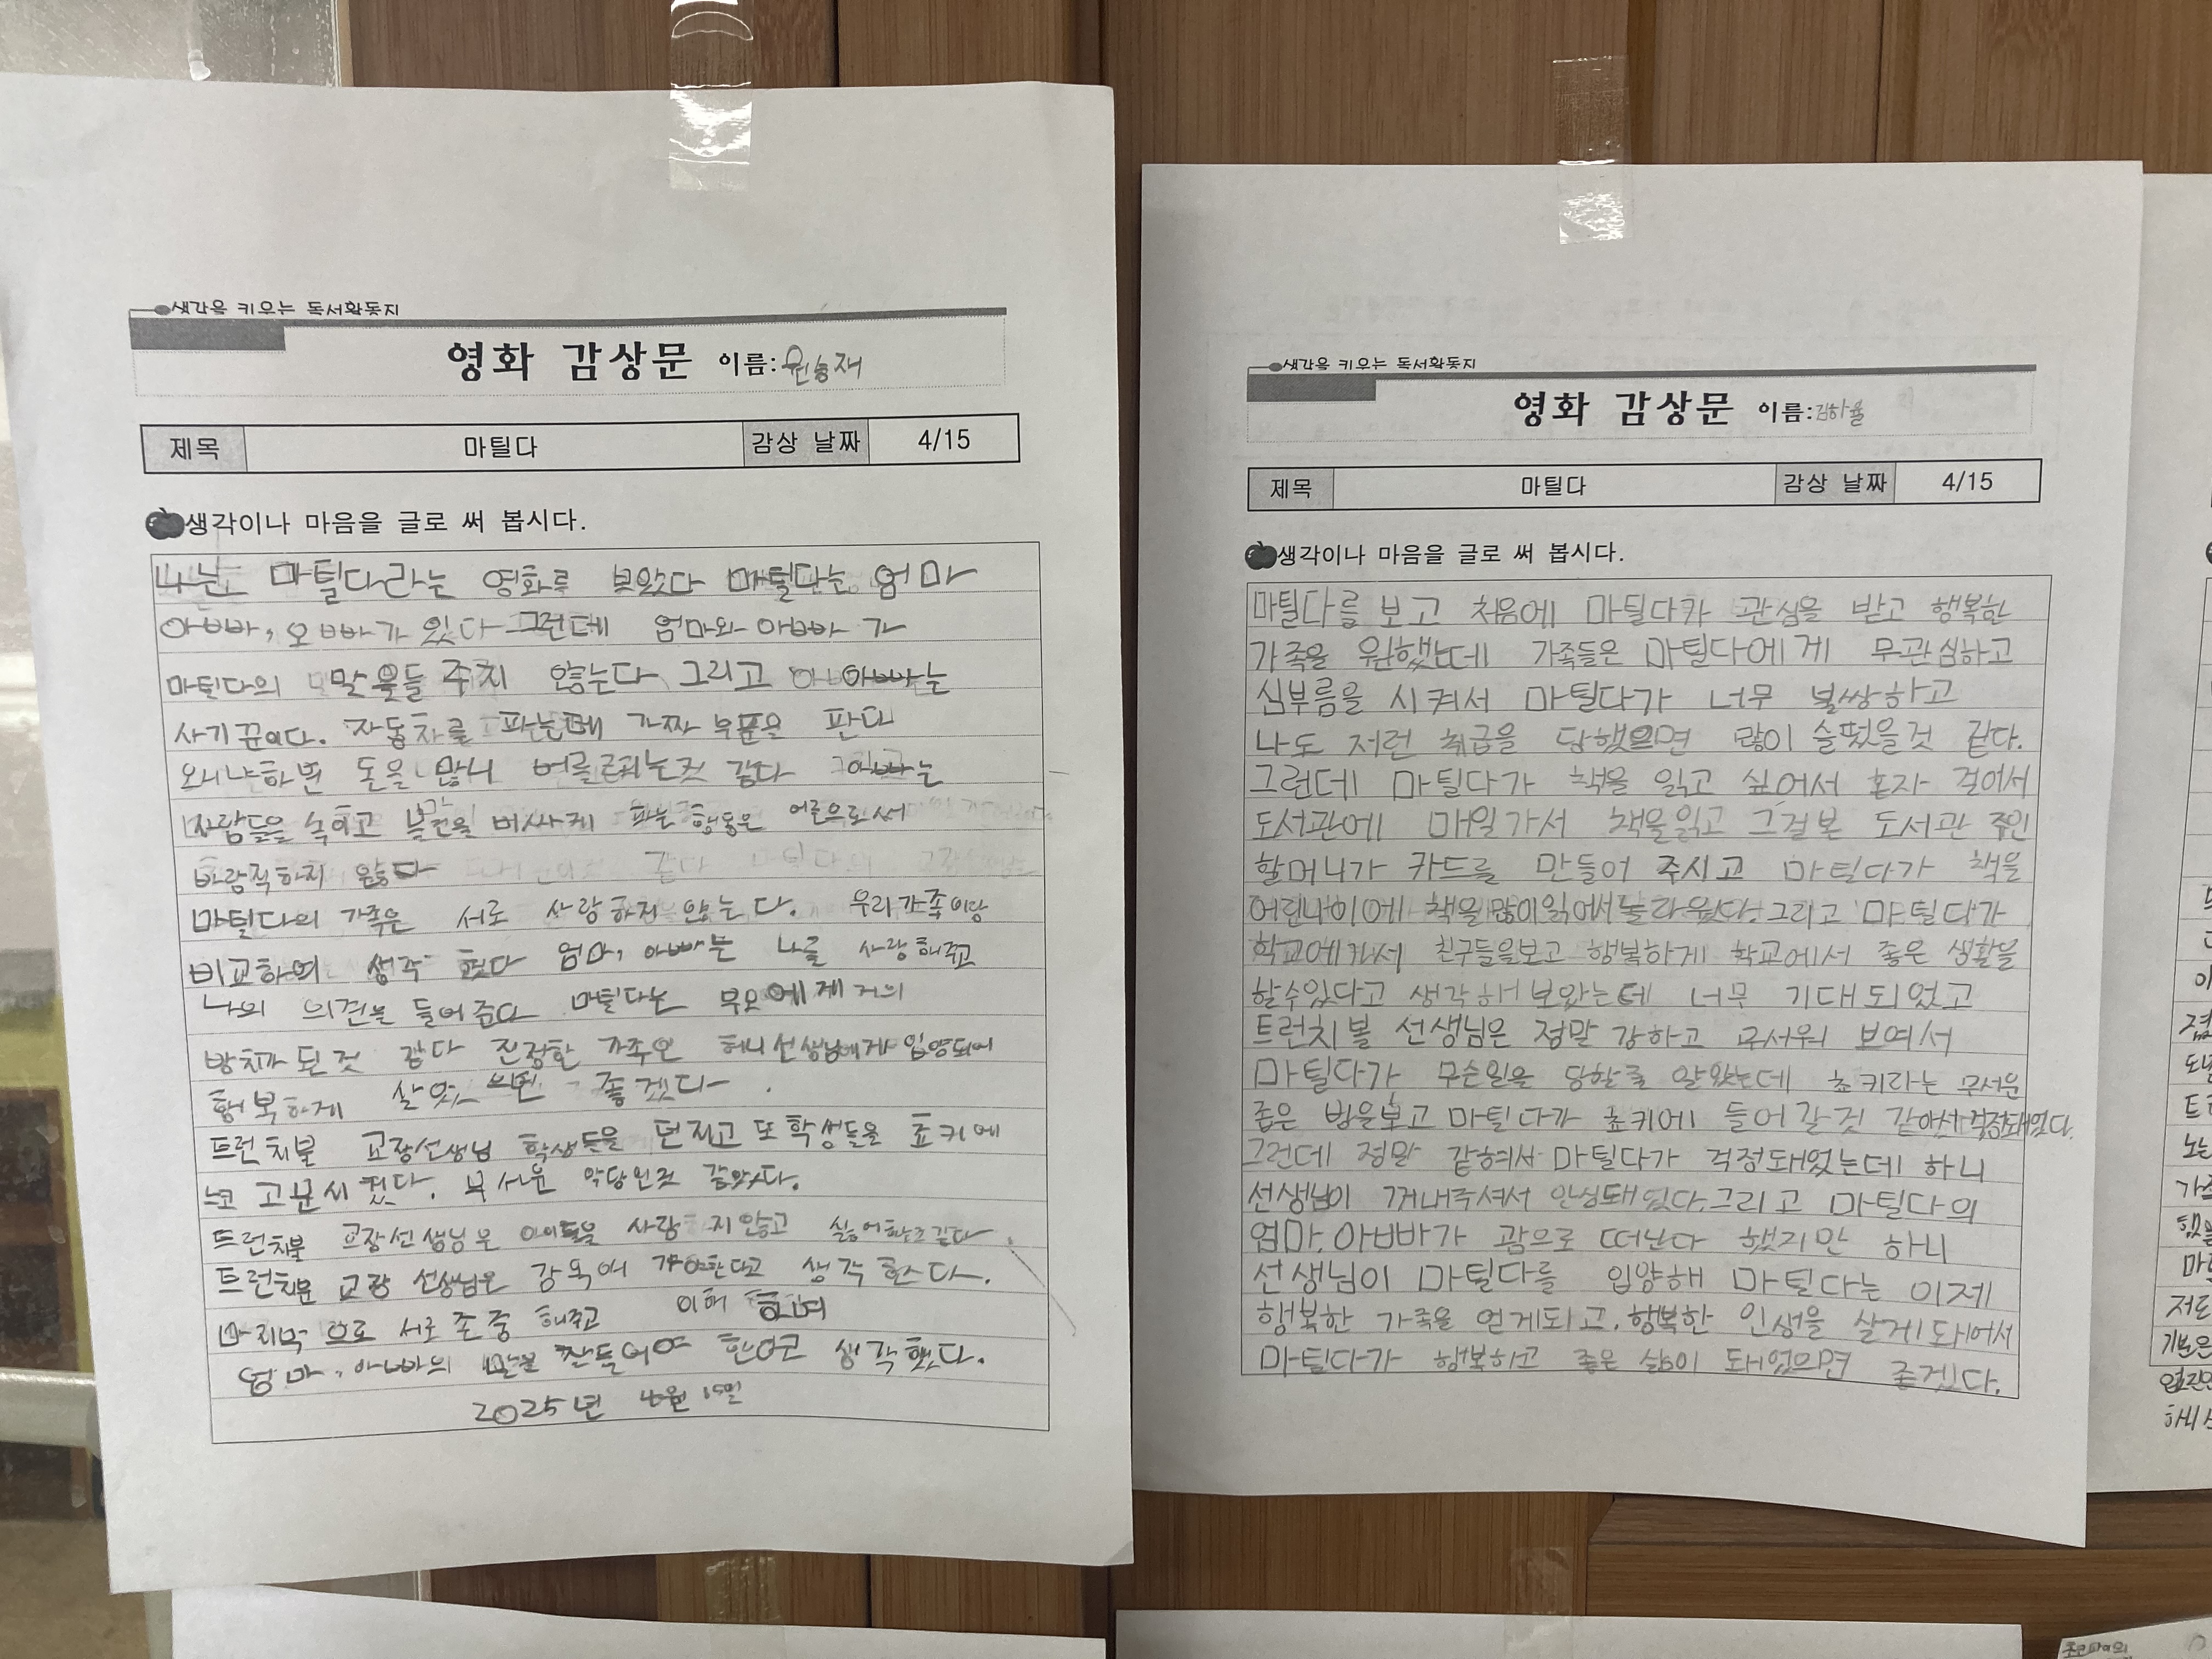 생각을 키우는 독서활동지
영화 감상문 이름:
제목 마틸다 감상 날짜 4/15
생각이나 마음을 글로 써 봅시다.
나는 마틸다라는 영화를 보았다 마틸다는 엄마
아빠, 오빠가 있다 그런데 엄마와 아빠가
마틸다의 말을 주지 않는다 그리고 아빠는
사기꾼이다. 자동차를 파는데 가짜 부품을 판다
돈을 많니 버를려는것 같다 아빠는
사람들을 속이고 물건을 비싸게 파는 행동은 어른으로써
바람직하지 않다
마틸다의 가족은 서로 사랑하지 않는다. 우리가족이랑
비교하여 생각 했다 엄마, 아빠는 나를 사랑해주고
나의 의견을 들어준다 마틸다는 부모에게 거의
방치가 된것 같다 진정한 가족은 허니선생님에게 입양되어
행복하게 살았으면 좋겠다
트런치불 교장선생님 학생들을 던지고 또 학생들을 쵸키에
고문시켰다. 무서운 악당인것 같았다.
트런치불 교장선생님은 아이들을 사랑하지않고 싫어하는것같다
트런치불 교장 선생님은 감옥에 가야한다고 생각했다.
마지막으로 서로 존중해주고 이해하며
엄마, 아빠의 말을 잘들어야 한다고 생각했다.
2025년 4월 15일
생각을 키우는 독서활동지
영화 감상문 이름:김하율
제목 마틸다 감상 날짜 4/15
생각이나 마음을 글로 써 봅시다.
마틸다를 보고 처음에 마틸다가 관심을 받고 행복한
가족을 원했는데 가족들은 마틸다에게 무관심하고
심부름을 시켜서 마틸다가 너무 불쌍하고
나도 저런 취급을 당했으면 많이 슬펐을것 같다.
그런데 마틸다가 책을 읽고 싶어서 혼자 걸어서
도서관에 매일가서 책을읽고 그걸본 도서관 주인
할머니가 카드를 만들어 주시고 마틸다가 책을
어린나이에 책을많이읽어서놀라웠다.그리고 마틸다가
학교에가서 친구들을보고 행복하게 학교에서 좋은 생활을
할수있다고 생각해보았는데 너무 기대되었고
트런치불 선생님은 정말 강하고 무서워 보여서
마틸다가 무슨일을 당할줄 알았는데 쵸키라는 무서운
좁은 방을보고 마틸다가 쵸키에 들어갈것 같아서걱정돼었다.
그런데 정말 같혀서 마틸다가 걱정돼었는데 하니
선생님이 꺼내주셔서 안심돼었다.그리고 마틸다의
엄마,아빠가 괌으로 떠난다 했지만 하니
선생님이 마틸다를 입양해 마틸다는 이제
행복한 가족을 얻게되고,행복한 인생을 살게돼어서
마틸다가 행복하고 좋은 삶이 돼었으면 좋겠다.